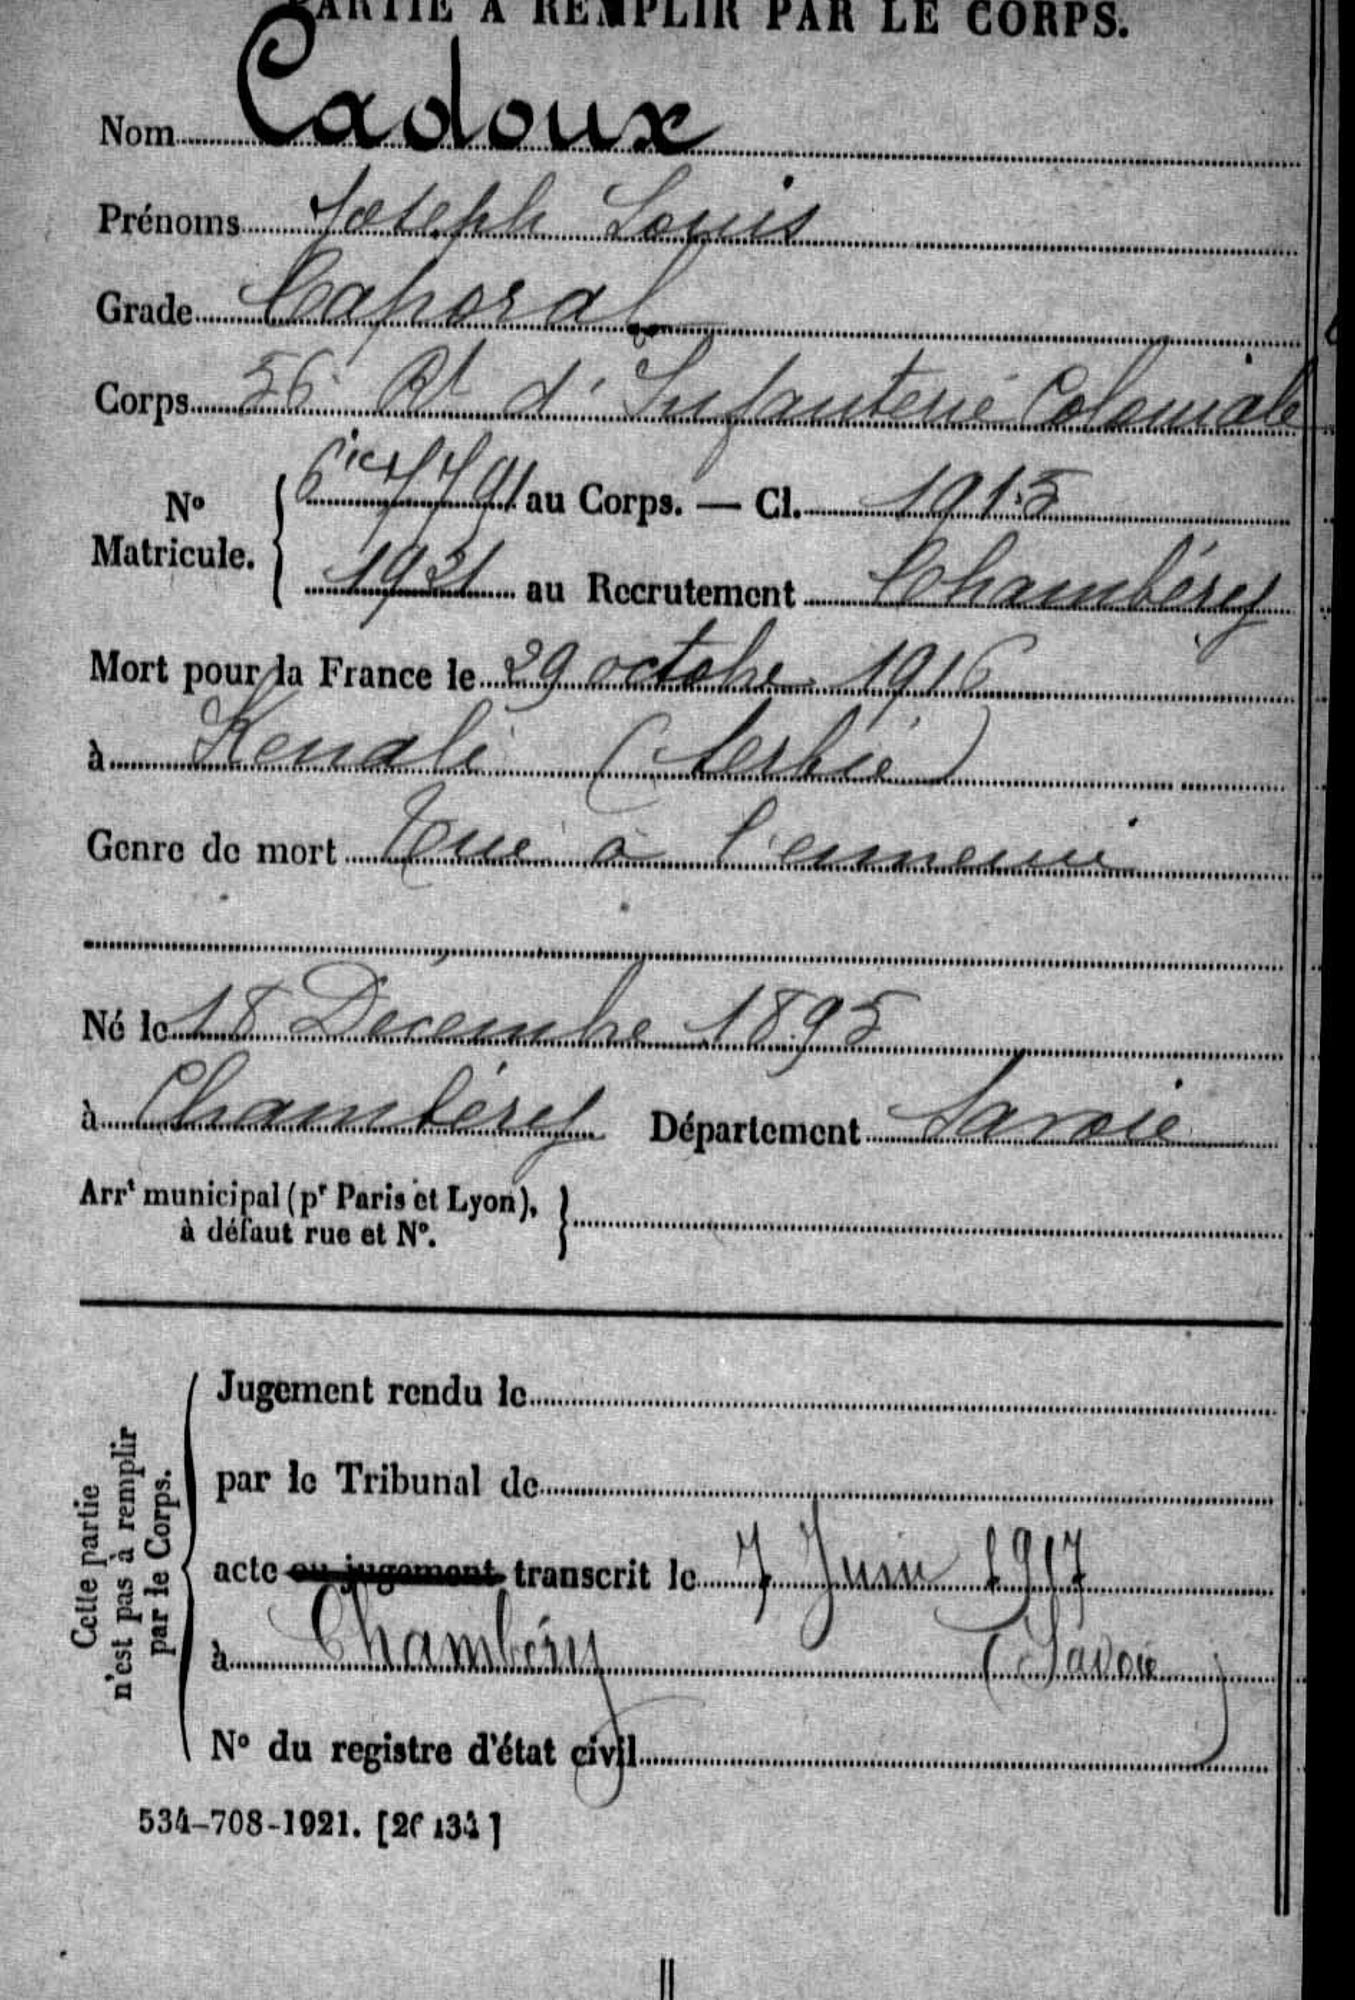 PARTIE À REMPLIR PAR LE CORPS.
Nom Cadoux
Prénoms Joseph Louis
Grade Caporal
Corps 56 Rt d'Infanterie Coloniale
No Matricule. { 6 ic 7791 au Corps. — Cl. 1915
1921 au Recrutement Chambéry
Mort pour la France le 29 octobre 1916
à Kenali (Serbie)
Genre de mort Tué à l'ennemi
Né le 18 Décembre 1895
à Chambéry Département Savoie
Arrt municipal (pr Paris et Lyon), à défaut rue et No. }
Cette partie n'est pas à remplir par le Corps.
Jugement rendu le
par le Tribunal de
acte ou jugement transcrit le 7 Juin 1917
à Chambéry (Savoie)
No du registre d'état civil
534-708-1921. [26434]